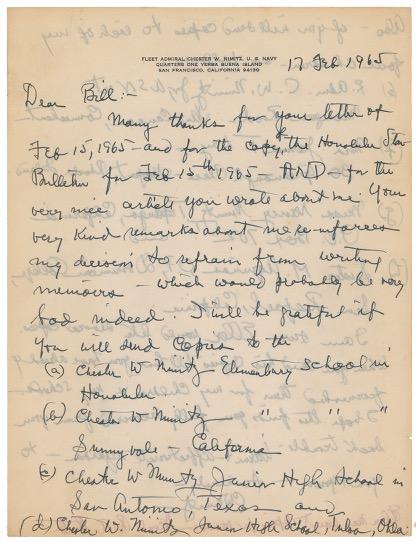 FLEET ADMIRAL CHESTER W. NIMITZ, U. S. NAVY
QUARTERS ONE YERBA BUENA ISLAND
SAN FRANCISCO, CALIFORNIA 94130
17 Feb 1965
Dear Bill:-
Many thanks for your letter of
Feb 15, 1965 - and for the copy of the Honolulu Star
Bulletin for Feb 15th 1965 - AND - for the
very nice article you wrote about me. Your
very kind remarks about me re-inforces
my decision to refrain from writing
memoirs - which would probably be very
bad indeed. I will be grateful if
you will send copies to the
(a) Chester W Nimitz Elementary School in
Honolulu
(b) Chester W Nimitz " " "
Sunnyvale - California
(c) Chester W Nimitz Junior High School in
San Antonio, Texas and
(d) Chester W. Nimitz Junior High School, Tulsa, Okla.